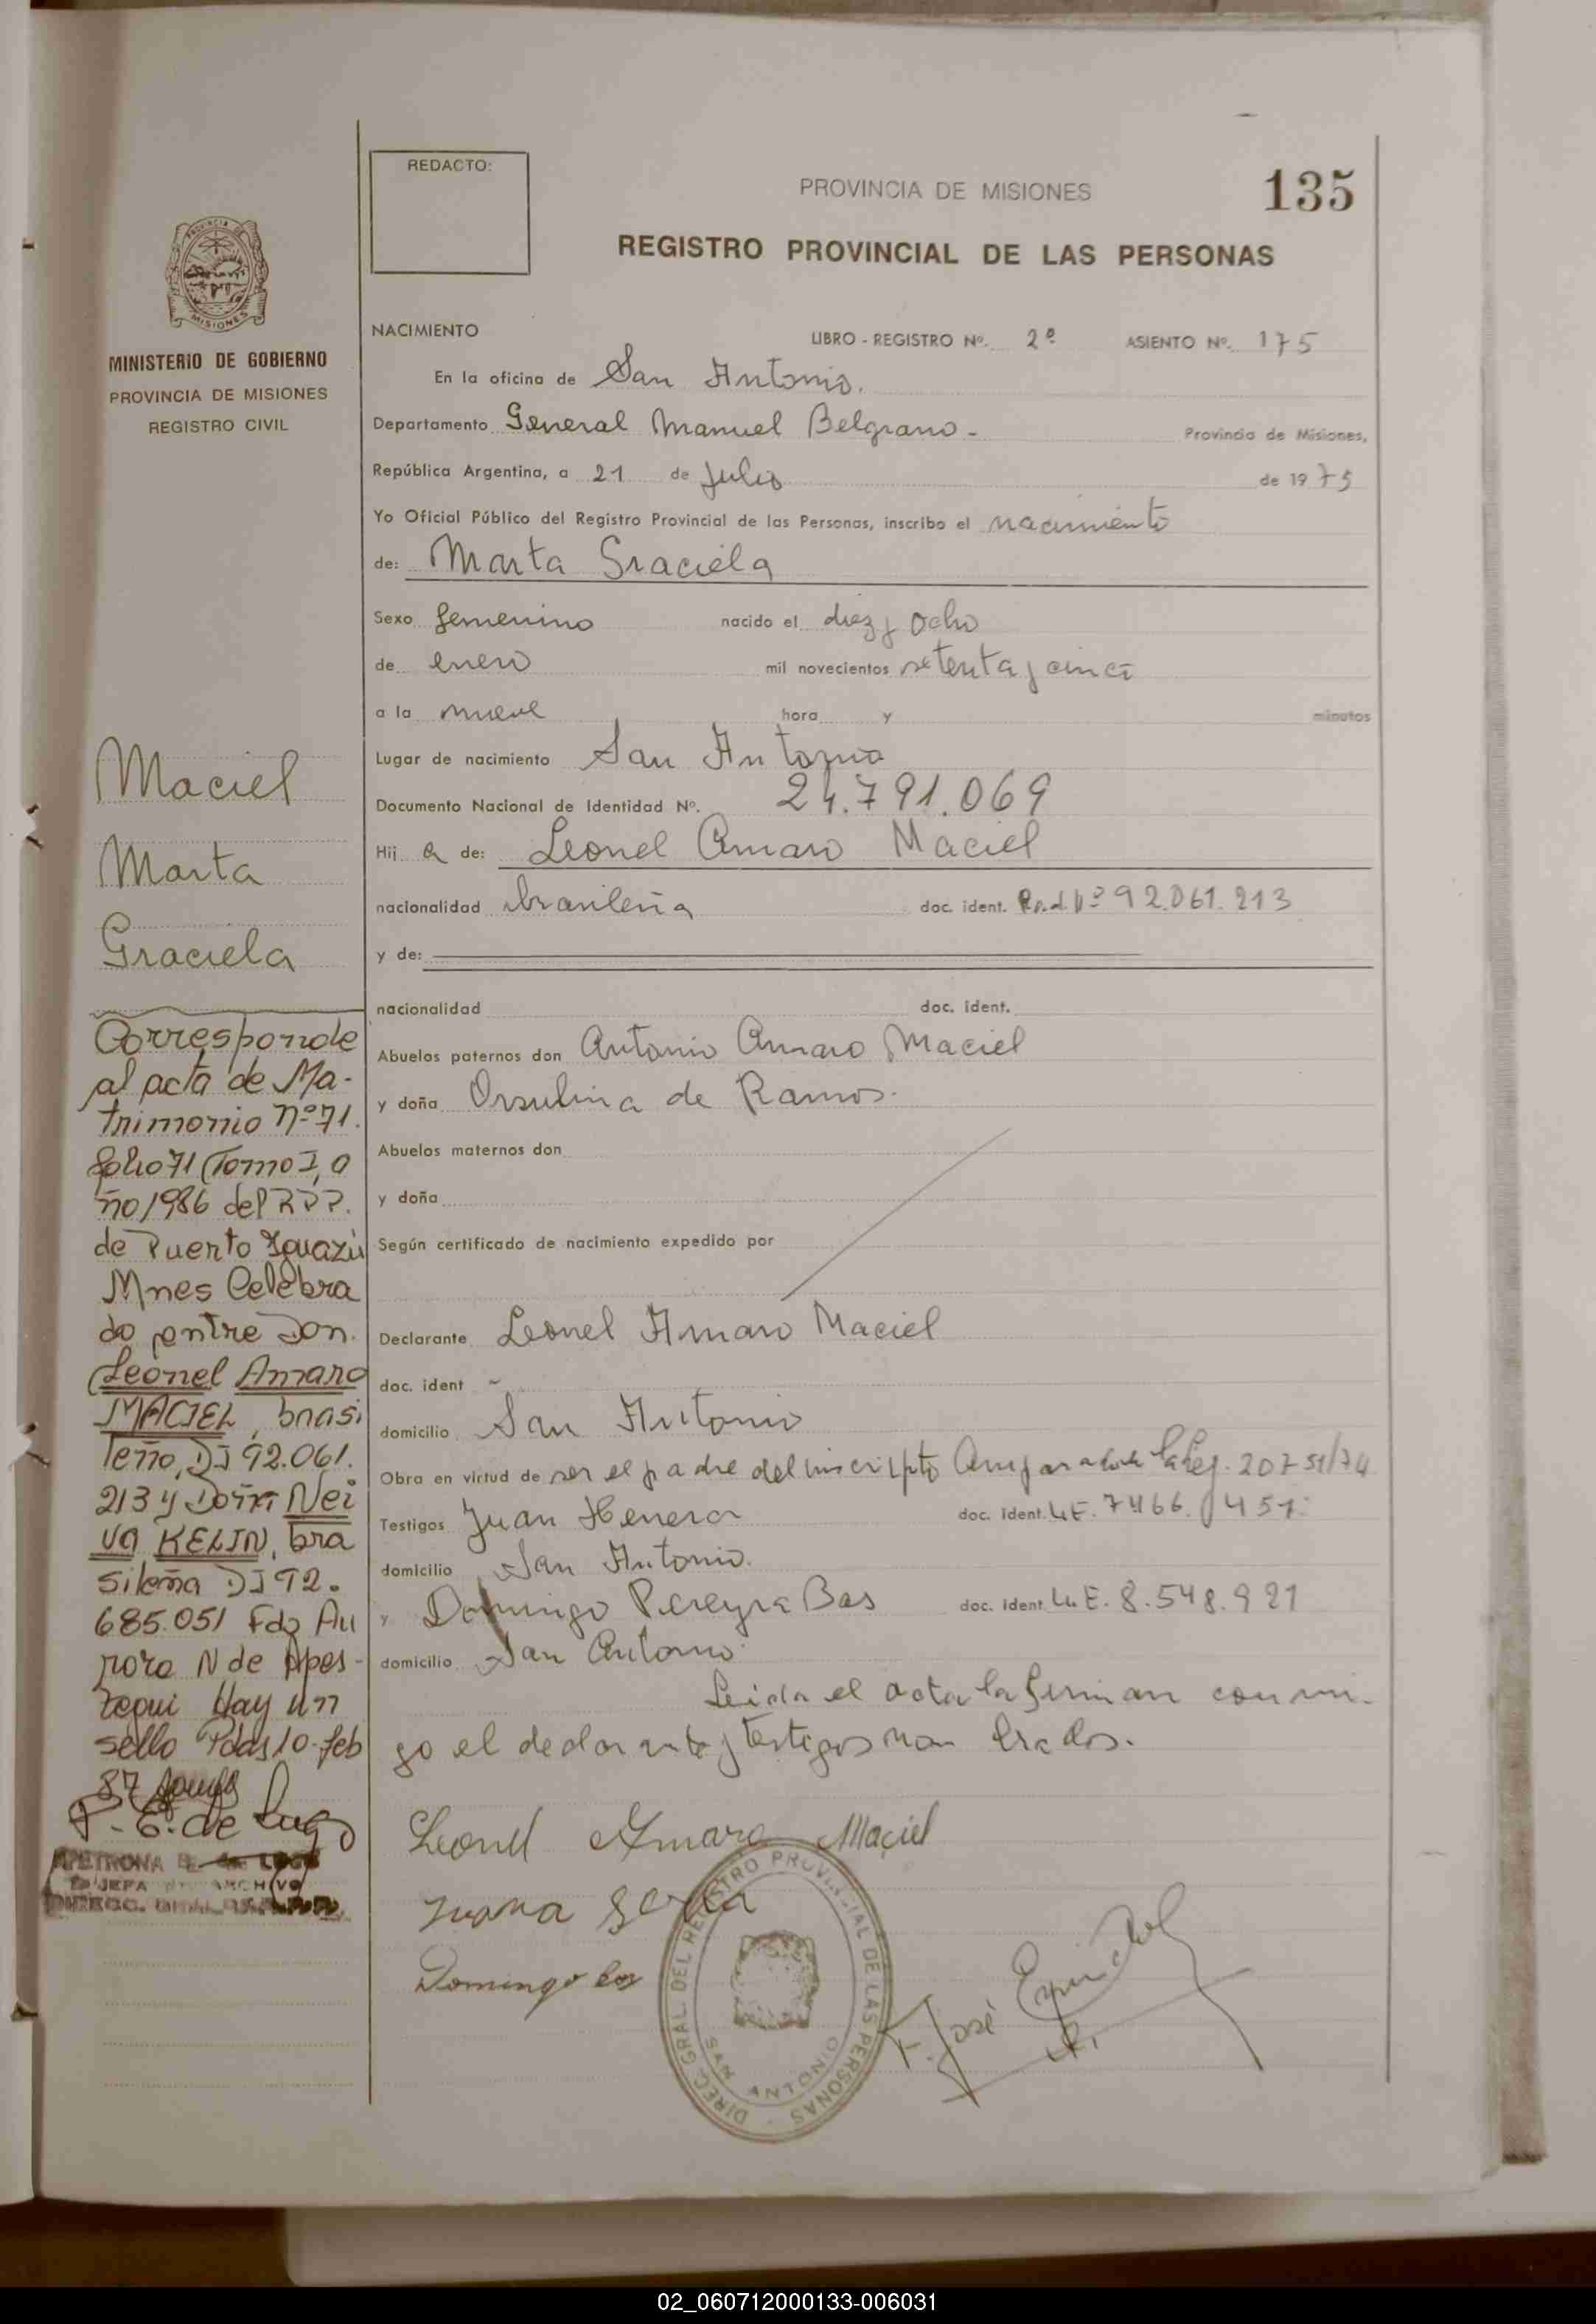 REDACTO:
PROVINCIA DE MISIONES
135
REGISTRO PROVINCIAL DE LAS PERSONAS
PROVINCIA DE
MISIONES
MINISTERIO DE GOBIERNO
PROVINCIA DE MISIONES
REGISTRO CIVIL
NACIMIENTO
LIBRO - REGISTRO Nº. 2º ASIENTO Nº. 175
En la oficina de San Antonio.
Departamento General Manuel Belgrano - Provincia de Misiones,
República Argentina, a 21 de Julio de 1975
Yo Oficial Público del Registro Provincial de las Personas, inscribo el nacimiento
de: Marta Graciela
Sexo femenino nacido el diez y ocho
de enero mil novecientos setenta y cinco
a la nueve hora y minutos
Lugar de nacimiento San Antonio
Documento Nacional de Identidad Nº. 24.791.069
Hij a de: Leonel Amaro Maciel
nacionalidad brasileña doc. ident. Nº 92.061.213
y de:
nacionalidad doc. ident.
Abuelos paternos don Antonio Amaro Maciel
y doña Orsulina de Ramos.
Abuelos maternos don
y doña
Según certificado de nacimiento expedido por
Declarante Leonel Amaro Maciel
doc. ident -
domicilio San Antonio
Obra en virtud de ser el padre del inscripto Amparado la Ley. 20751/74
Testigos Juan Herrera doc. ident. L.E. 7466.451.
domicilio San Antonio.
y Domingo Pereyra Bas doc. ident. L.E. 8.548.921
domicilio San Antonio.
Leida el acta la firman conmi-
go el declarante y testigos
Leonel Amaro Maciel
Juana
Domingo Bas
DIREC. GRAL. DEL REGISTRO PROVINCIAL DE LAS PERSONAS
SAN ANTONIO
José
Maciel
Marta
Graciela
Corresponde
al acta de Ma-
trimonio nº 71.
folio 71 Tomo I, a
ño 1986 del R.P.P.
de Puerto Iguazú
Mnes Celebra
do entre Don.
Leonel Amaro
MACIEL, brasi
leño, DI 92.061.
213 y Doña Nei
va KELIN, bra
sileña DI 92.
685.051 Fdo Au
rora N de Apes-
tegui Hay un
sello Pdas 10-feb
87
P. E. de Lugo
PETRONA E. de LUGO
JEFA ARCHIVO
DIRECC. GRAL.
02_060712000133-006031